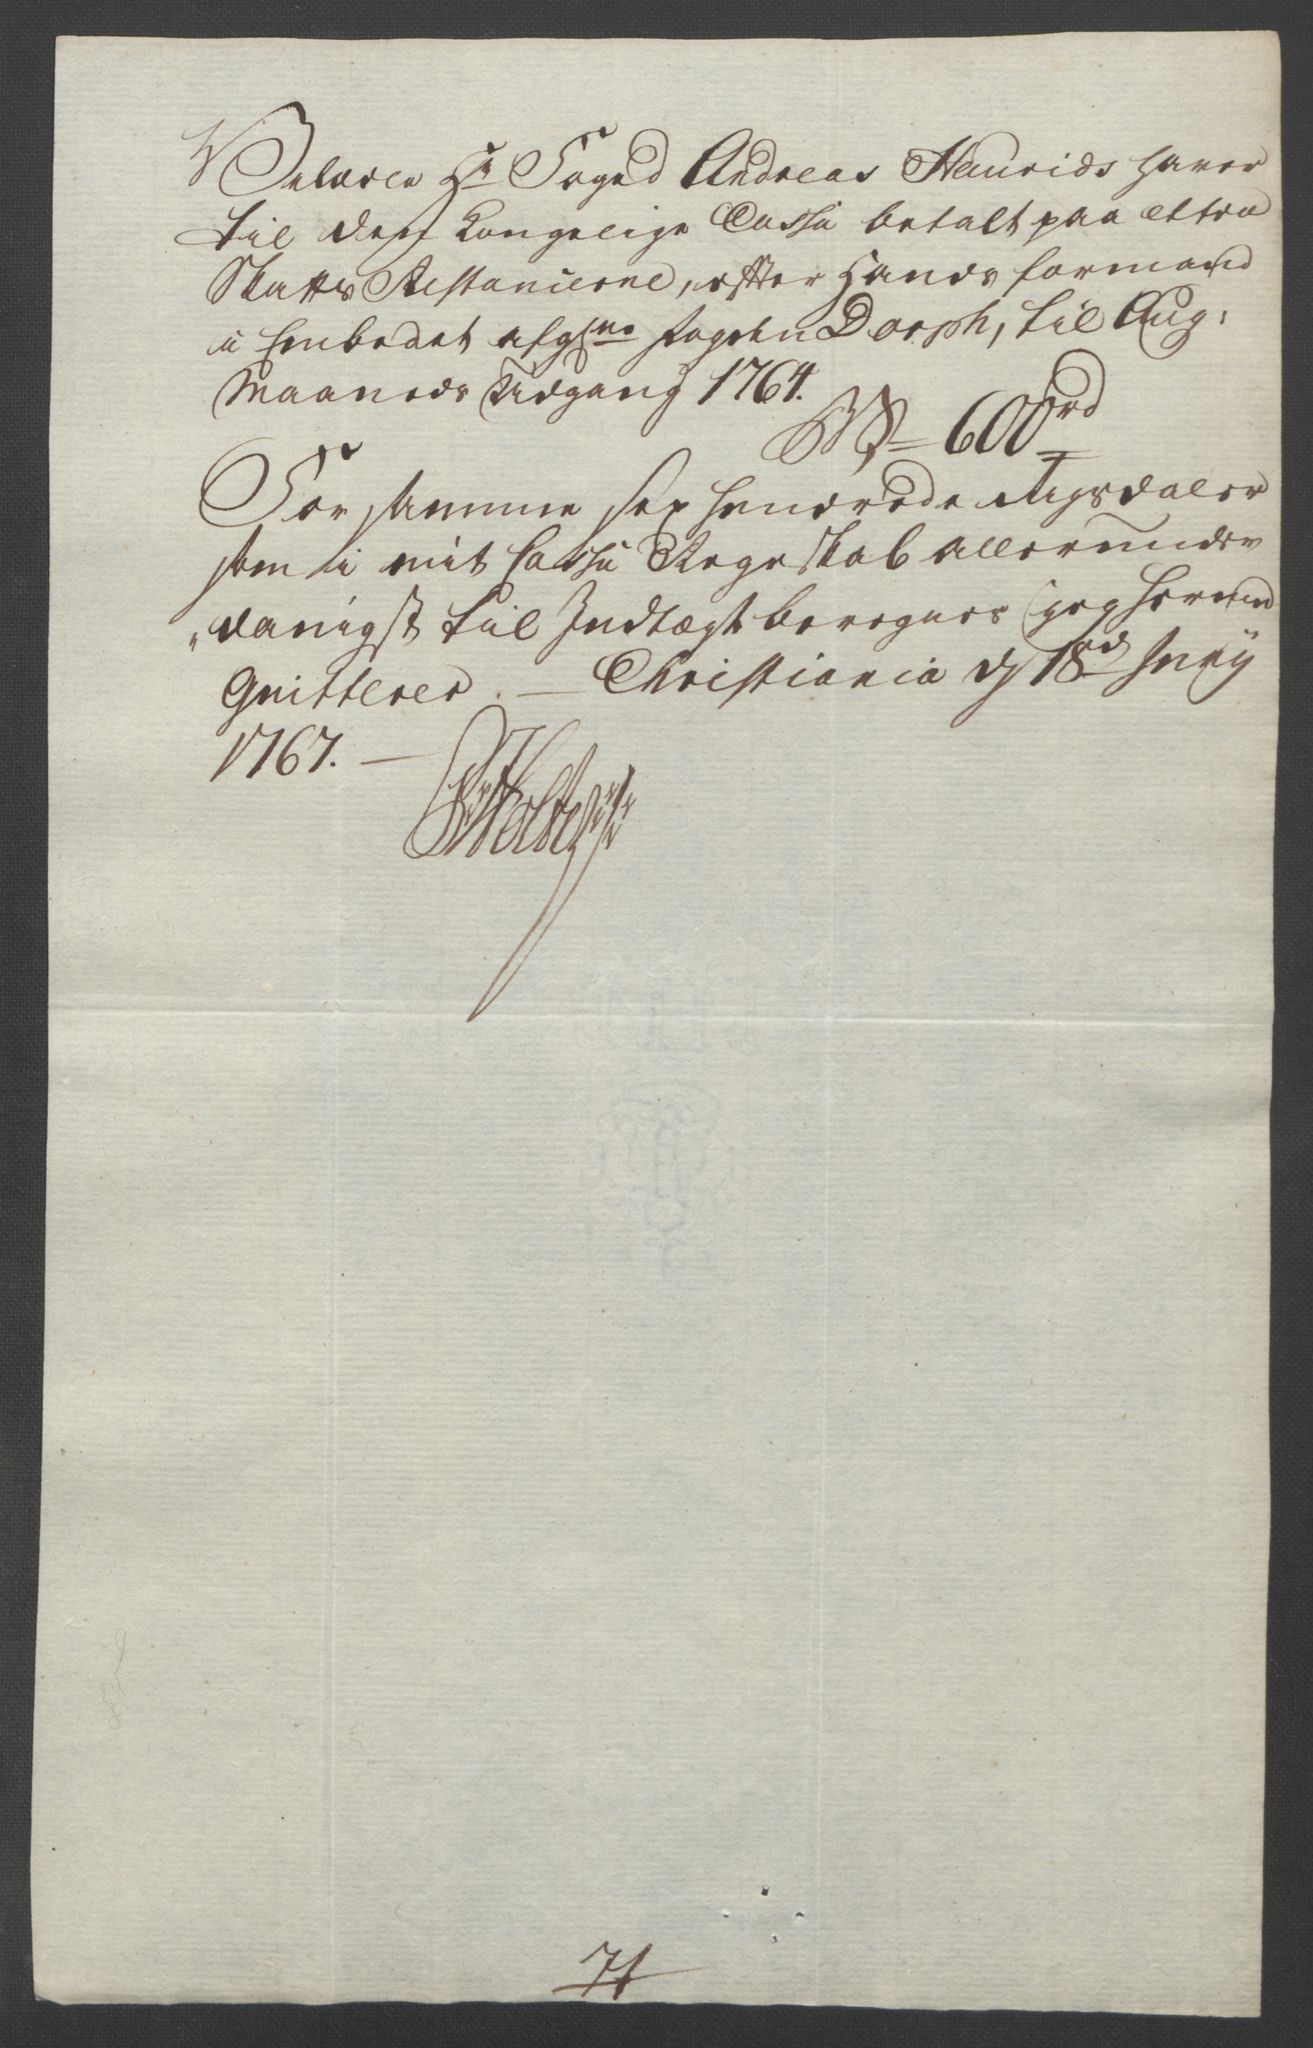 Velædle Hr Foged Andreas Heurids haver
til den Kongelige Cassa betalt paa Extra
Skatts Restancerne, efter Hands formand
i Embedet afgl: Fogden Dorph, til Aug:
Maaneds Udgang 1764.
600 rd
For samme sex hundrede Rigsdaler
som i mit Cassa Regnskab allerunder
danigst til Indtægt beregnes jeg herved
Qvitterer. — Christiania d 18de Juny
1767. —
Holtz
71